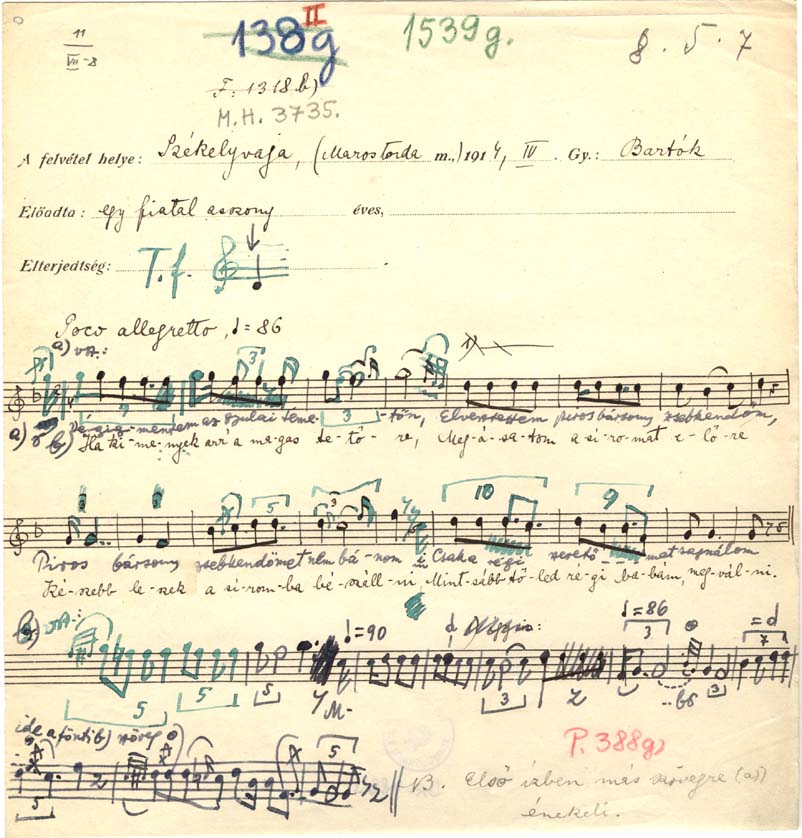 11
VII-8
138g II
1539g.
8.5.7
F: 1318b)
M.H. 3735.
A felvétel helye: Székelyvaja, (Marostorda m.,) 1914, IV. Gy.: Bartók
Előadta: egy fiatal asszony éves,
Elterjedtség: T.f.
Poco allegretto, ♩=86
a) vált.:
3
a) Végigmentem az gyulai teme-tőn, Elvesztettem piros bársony zsebkendőm,
b) Ha ki-me-nyek arr a ma-gas te-tő-re, Meg-á-sa-tom a si-ro-mat e-lő-re
5 3 10 9
Piros bársony zsebkendőmet nem bá-nom, Csak a régi szerető-mat sajnálom
Ké-szebb le-szek a si-rom-ba bé-száll-ni, Mint-sébb tő-led ré-gi ba-bám, meg-vál-ni.
b)
♩=90
♩=86
5 5 5 3 3 3 7
ide a fönti b) szöveg
5 5
P. 388g)
NB. Első ízben más szövegre (a))
énekeli.